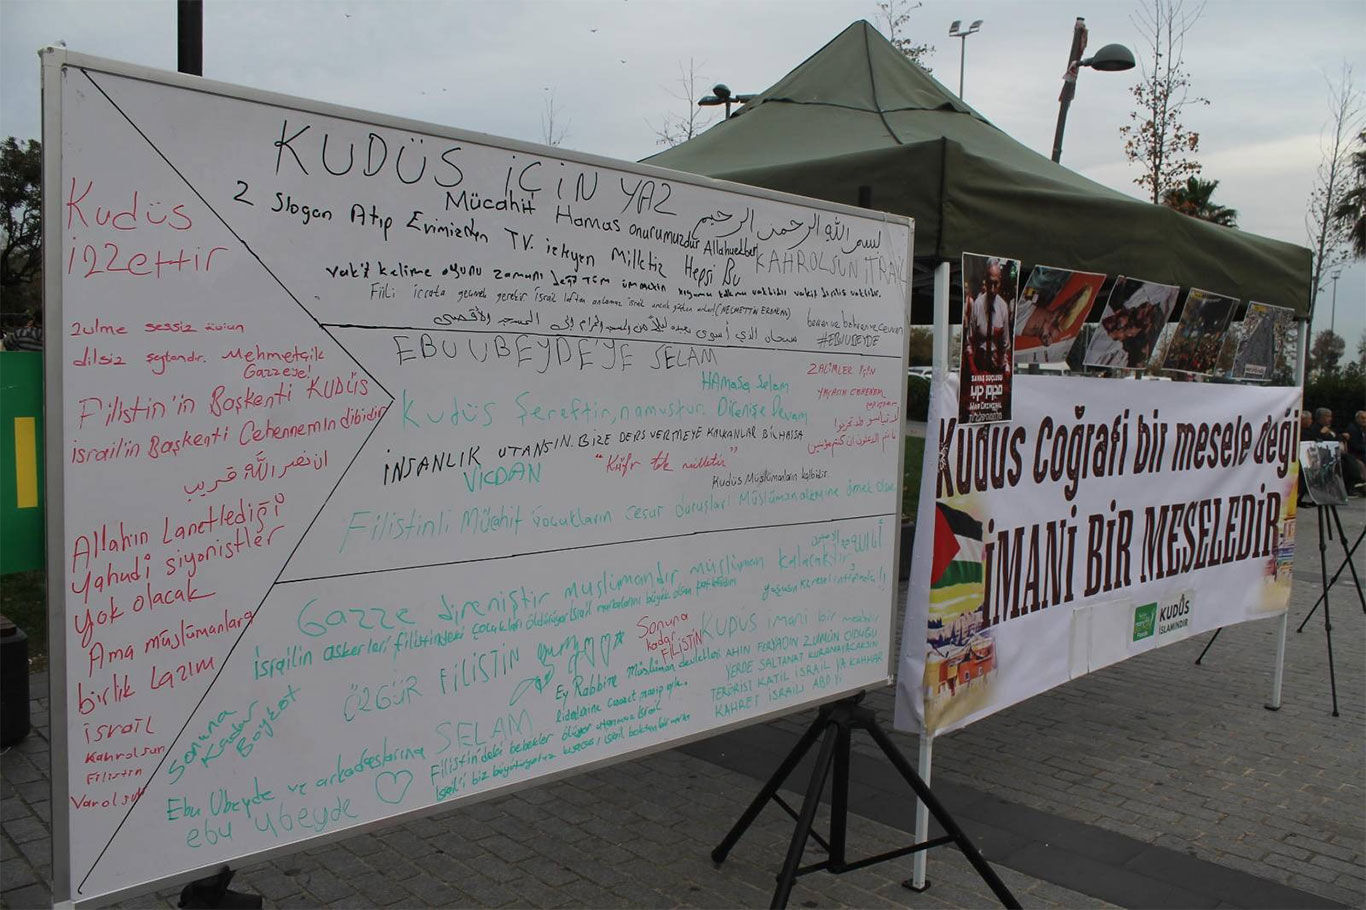 KUDÜS İÇİN YAZ
Mücahit Hamas onurumuzdur Allahuekber
بسم الله الرحمن الرحيم
2 Slogan Atıp Evimizden TV. izleyen Milletiz Hepsi Bu
KAHROLSUN
vakit kelime oyunu zamanı değil tüm ümmetin
vakit diriliş vaktidir.
Fiili icraata geçmek gerekir israil laftan anlamaz
(NECMETTİN ERBAKAN)
سبحان الذي أسرى بعبده ليلا من المسجد الحرام إلى المسجد الأقصى
#EBUUBEYDE
Kudüs
izzettir
zulme sessiz
dilsiz şeytandır. Mehmetçik
Gazzeye!
Filistin'in Başkenti KUDÜS
israilin Başkenti Cehennemin dibidir
ان نصر الله قريب
Allahın Lanetlediği
Yahudi siyonistler
yok olacak
Ama müslümanlara
birlik Lazım
israil
Kahrolsun
Filistin
Varolsun
EBU UBEYDE'YE SELAM
HAMASa Selam
ZALİMLER İÇİN
YAŞASIN CEHENNEM
Kudüs Şereftir, namustur. Direnişe Devam
İNSANLIK UTANSIN. BİZE DERS VERMEYE KALKANLAR
VİCDAN
"Küfr tek millettir"
Kudüs Müslümanların kalbidir.
Filistinli Mücahit çocukların cesur duruşları Müslüman alemine örnek olsun
Gazze direniştir müslümandır müslüman kalacaktır
yaşasın küresel intifada
İsrailin askerleri filistindeki çocukları öldürüyor
ÖZGÜR FİLİSTİN
Sonuna
kadar
FİLİSTİN
KUDÜS imani bir meseledir
Ey Rabbim Müslüman devletleri
AHIN FERYADIN ZULMÜN OLDUĞU
YERDE SALTANAT KURANAYACAKSIN
TERÖRİST KATİL İSRAİL YA KAHHAR
KAHRET İSRAİLİ ABD Yİ
Sonuna
Kadar
Boykot
Ebu Ubeyde ve arkadaşlarına
SELAM
Filistin'deki bebekler ölüyor utanmaz israil
ebu ubeyde
SAVAŞ SUÇLUSU
WAR CRIMINAL
Kudüs Coğrafi bir mesele değil
İMANİ BİR MESELEDİR
KUDÜS
İSLAMINDIR